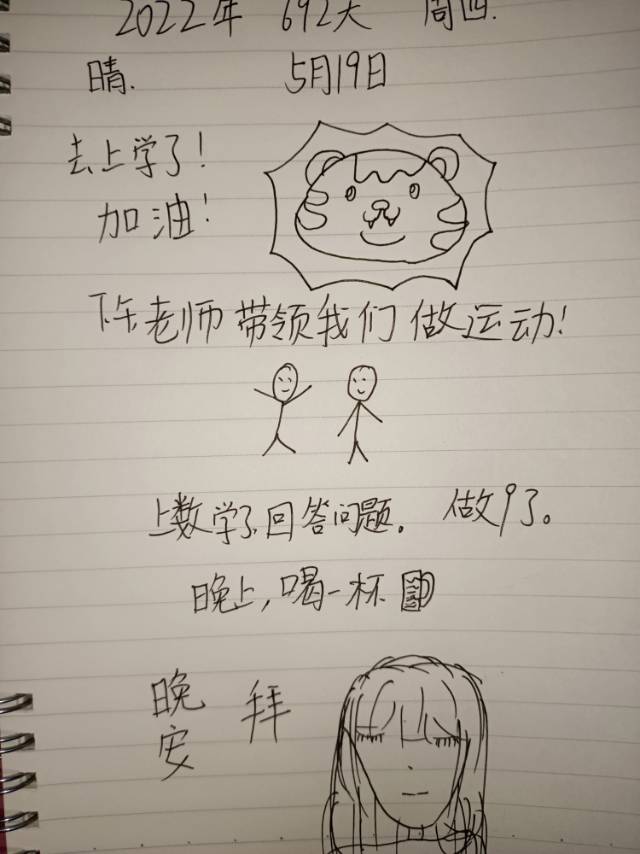 2022年 692天 周四.
晴. 5月19日
去上学了!
加油!
下午老师带领我们做运动!
上数学了,回答问题。做9了。
晚上,喝一杯
晚安 拜